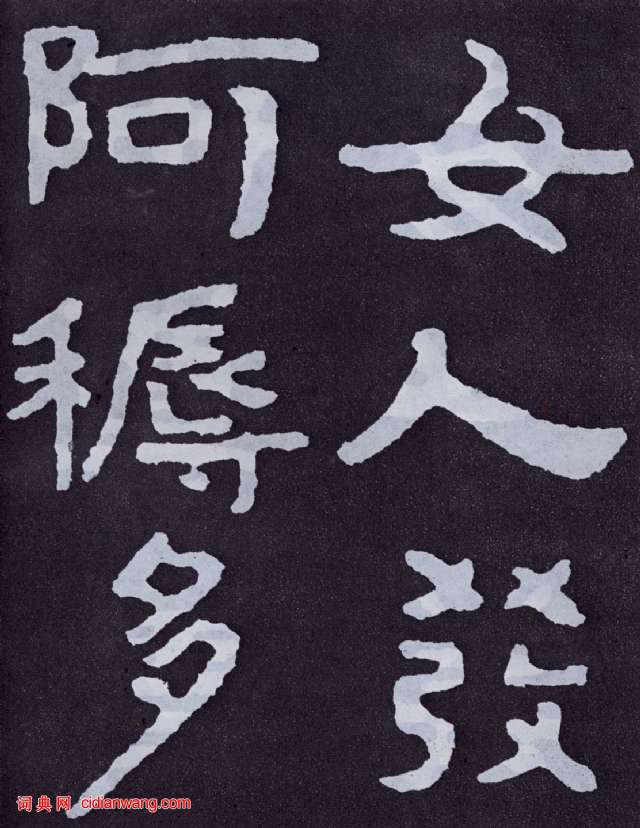 女人發
阿耨多
词典网 cidianwang.com